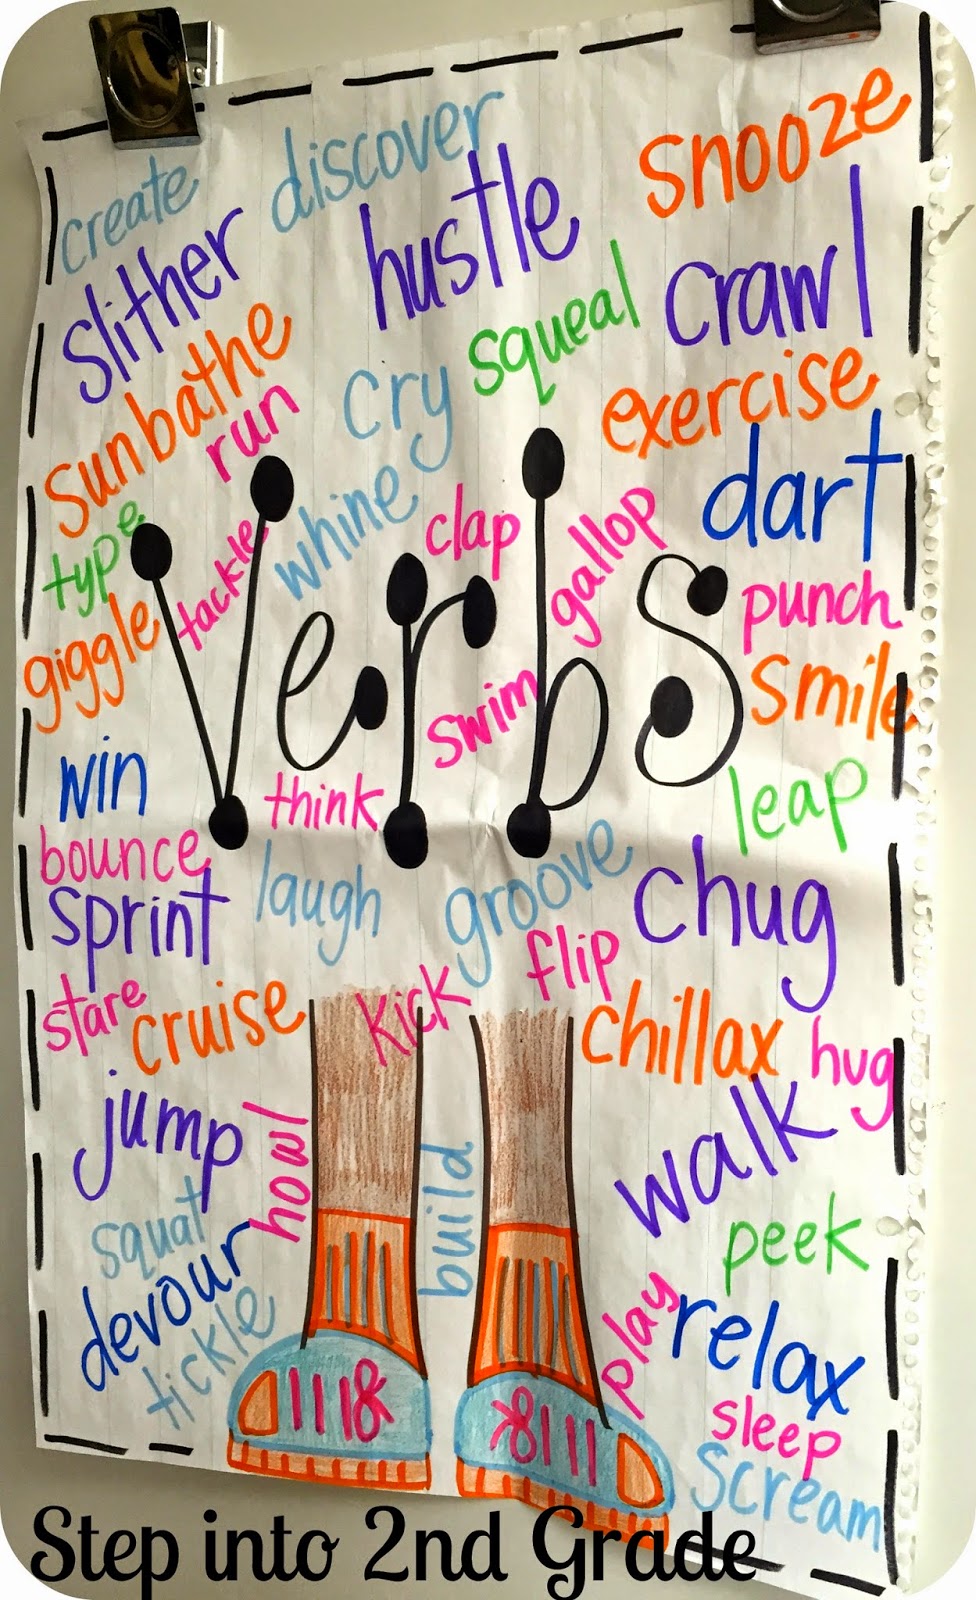 create
discover
snooze
slither
hustle
crawl
squeal
sunbathe
run
cry
exercise
dart
type
tackle
whine
clap
gallop
punch
giggle
verbs
smile
swim
win
think
leap
bounce
sprint
laugh
groove
chug
stare
cruise
kick
flip
chillax
hug
jump
howl
build
walk
squat
peek
devour
tickle
play
relax
sleep
scream
Step into 2nd Grade